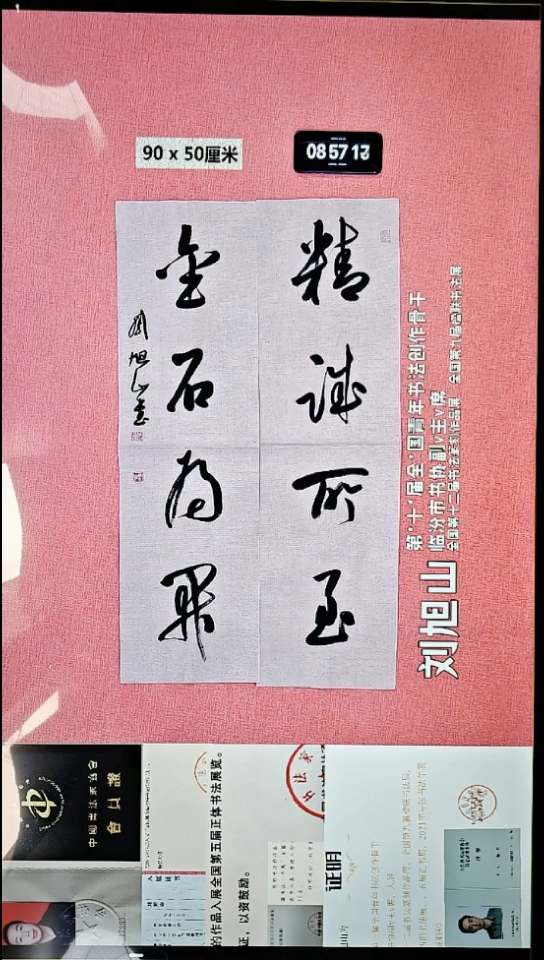 90 x 50厘米
08 57 13
精誠所至
金石為開
劉旭山書
刘旭山
第'十'届全'国青年书法创作骨干
临汾市书协副v主v席
全国第十二届书法篆刻作品展 全国第九届楹联书法展
中國書法家協會
會員證
的作品入展全国第五届正体书法展览。
证，以资鼓励。
证明